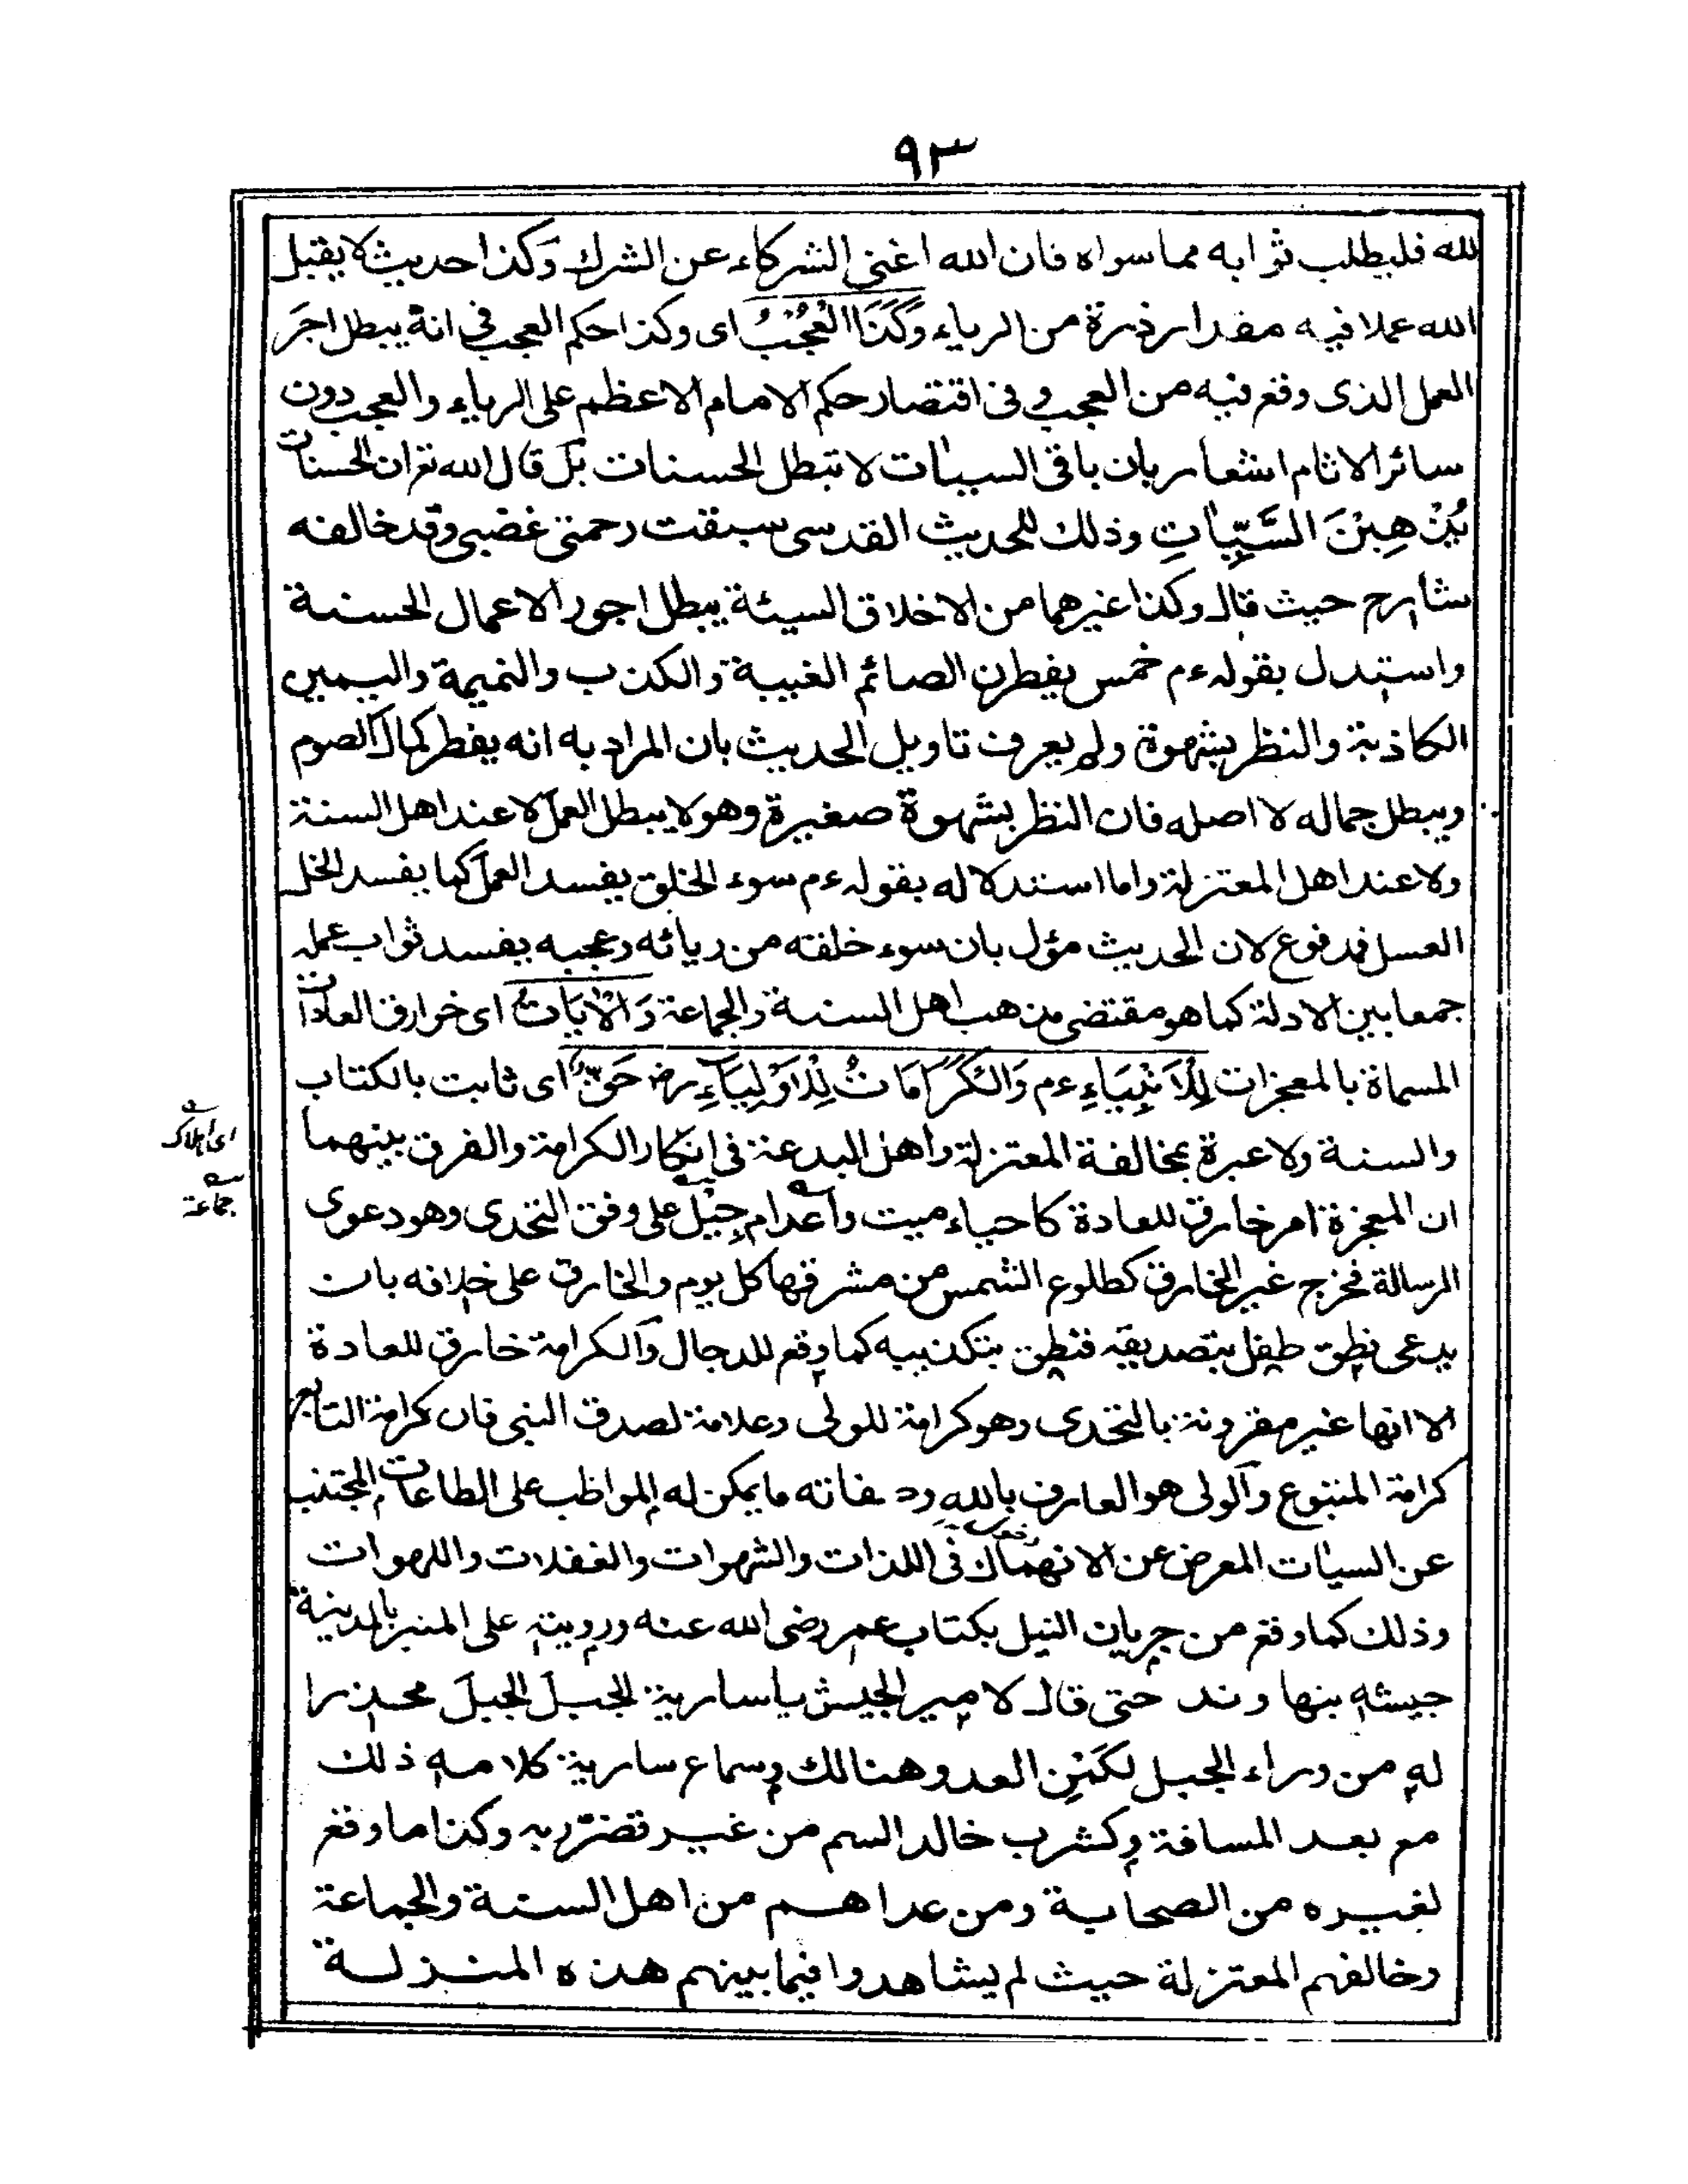 ٩٣
لله فليطلب ثوابه مما سواه فان الله اغنى الشركاء عن الشرك وكذا حديث لا يقبل
الله عملا فيه مقدار ذرة من الرياء وَكَذَا الْعُجْبُ اى وكذا حكم العجب فى انه يبطل اجر
العمل الذى وقع فيه من العجب وفى اقتصار حكم الامام الاعظم على الرياء والعجب دون
سائر الاثام اشعار بان باقى السيئات لا تبطل الحسنات بل قال الله تع ان الحسنات
يُذْهِبْنَ السَّيِّاٰتِ وذلك للحديث القدسى سبقت رحمتى غضبى وقد خالفه
شارح حيث قال وكذا غيرهما من الاخلاق السيئة يبطل اجور الاعمال الحسنة
واستدل بقوله عم خمس يفطرن الصائم الغيبة والكذب والنميمة واليمين
الكاذبة والنظر بشهوة ولم يعرف تاويل الحديث بان المراد به انه يفطر كمال الصوم
ويبطل جماله لا اصله فان النظر بشهوة صغيرة وهو لا يبطل العمل لا عند اهل السنة
ولا عند اهل المعتزلة واما استدلاله بقوله عم سوء الخلق يفسد العمل كما يفسد الخل
العسل فمدفوع لان الحديث مؤل بان سوء خلقته من ريائه وعجبه يفسد ثواب عمله
جمعا بين الادلة كما هو مقتضى مذهب اهل السنة والجماعة وَالْاٰيَاتُ اى خوارق العادات
المسماة بالمعجزات لِلْاَنْبِيَاءِ عم وَالْكَرَامَاتُ لِلْاَوْلِيَاءِ رض حَقٌّ اى ثابت بالكتاب
والسنة ولا عبرة بمخالفة المعتزلة واهل البدعة فى انكار الكرامة والفرق بينهما
اى اهلاك
ان المعجزة امر خارق للعادة كاحياء ميت واعدام جبل على وفق التحدى وهو دعوى
جماعة
الرسالة فخرج غير الخارق كطلوع الشمس من مشرقها كل يوم والخارق على خلافه بان
يدعى نطق طفل بتصديقه فنطق بتكذيبه كما وقع للدجال والكرامة خارق للعادة
الا انها غير مقرونة بالتحدى وهو كرامة للولى وعلامة لصدق النبى فان كرامة التابع
كرامة المتبوع والولى هو العارف بالله وصفاته ما يمكن له المواظب على الطاعات المجتنب
عن السيئات المعرض عن الانهماك فى اللذات والشهوات والغفلات واللهوات
وذلك كما وقع من جريان النيل بكتاب عمر رضى الله عنه ورويته على المنبر بالمدينة
جيشه بنهاوند حتى قال لامير الجيش يا سارية الجبل الجبل محذرا
له من وراء الجبل لكَمَنِ العدو هنالك وسماع سارية كلامه ذلك
مع بعد المسافة وكشرب خالد السم من غير تضرّر به وكذا ما وقع
لغيره من الصحابة ومن عداهم من اهل السنة والجماعة
وخالفهم المعتزلة حيث لم يشاهدوا فيما بينهم هذه المنزلة